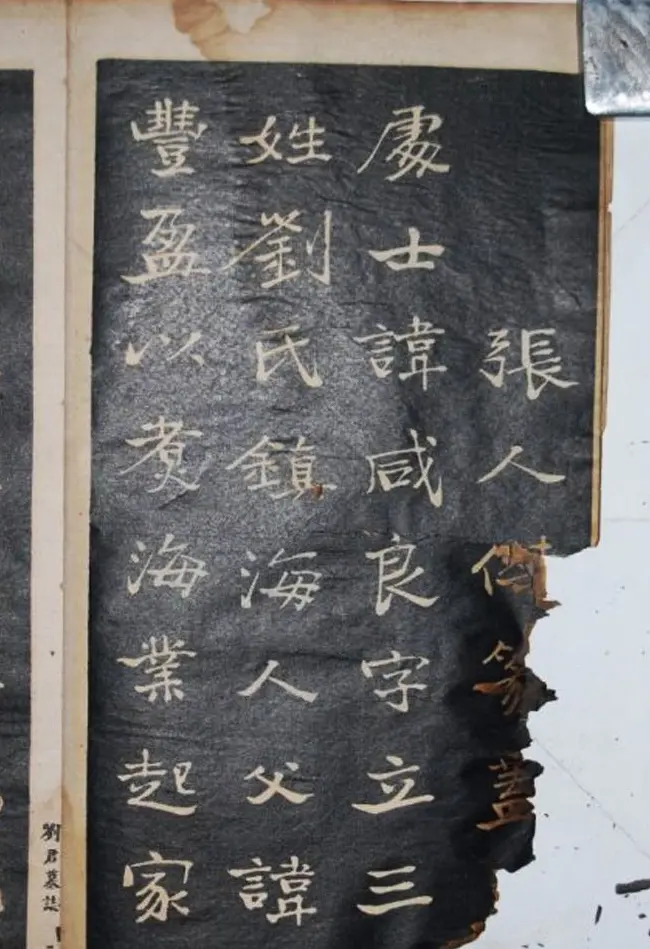 張人傑篆蓋
處士諱咸良字立三
姓劉氏鎮海人父諱
豐盈以煑海業起家
劉君墓誌